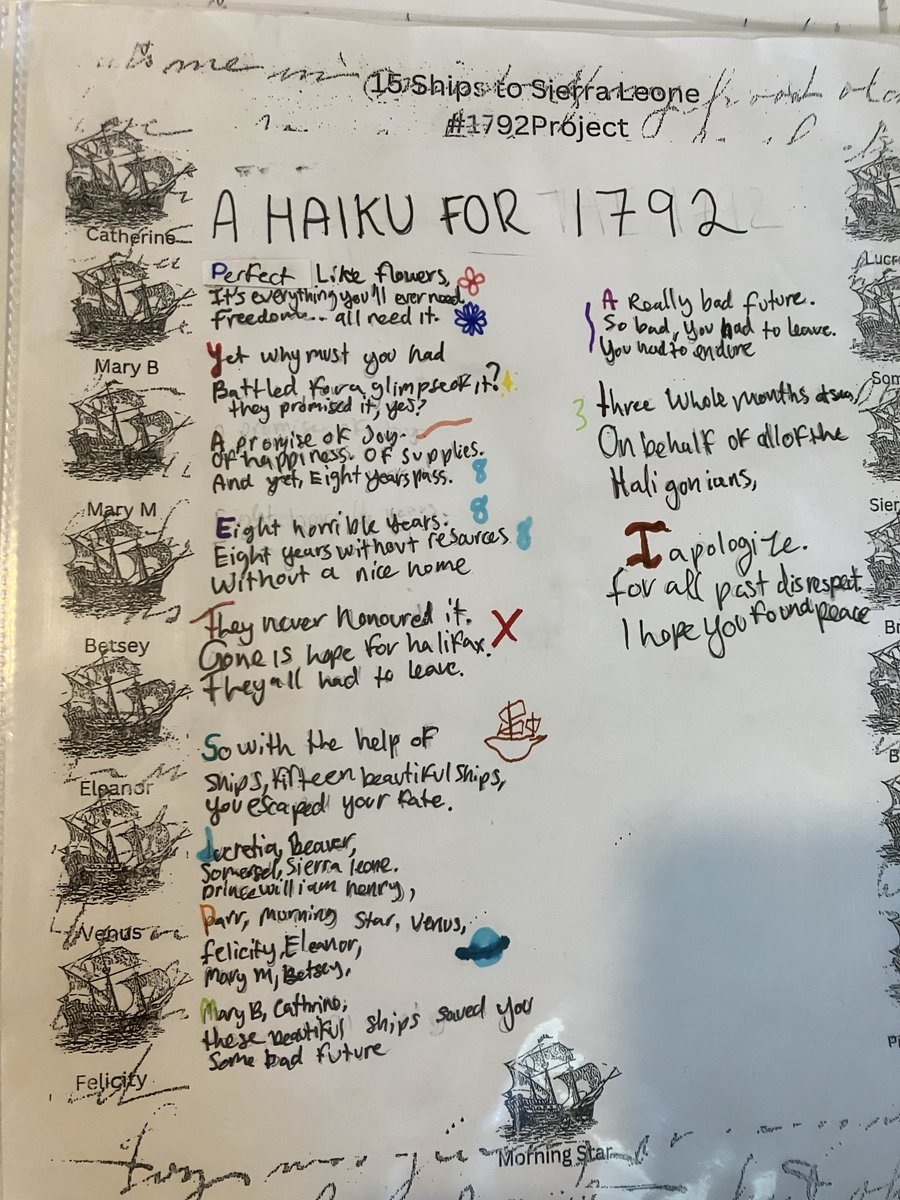 15 Ships to Sierra Leone
#1792Project
A HAIKU FOR 1792
Perfect Like flowers,
It's everything you'll ever need.
freedom... all need it.
Yet why must you had
Battled for a glimpse of it?
they promised it, yes?
A promise of Joy.
Of happiness. Of supplies.
And yet, Eight years pass. 8
Eight horrible years. 8
Eight years without resources 8
Without a nice home
They never honoured it.
Gone is hope for halifax. X
They all had to leave.
So with the help of
ships, fifteen beautiful ships,
you escaped your fate.
Lucretia, Beaver,
Somerset, Sierra leone.
prince william henry,
Parr, morning star, venus,
felicity, Eleanor,
Mary M, Betsey,
Mary B, Cathrino,
these beautiful ships saved you
Some bad future
A Really bad future.
So bad, you had to leave.
You had to endure
3 three whole months at sea,
On behalf of all of the
Haligonians,
I apologize.
for all past disrespect.
I hope you found peace
Catherine
Mary B
Mary M
Betsey
Eleanor
Venus
Felicity
Morning Star
Lucr
Som
Sier
B